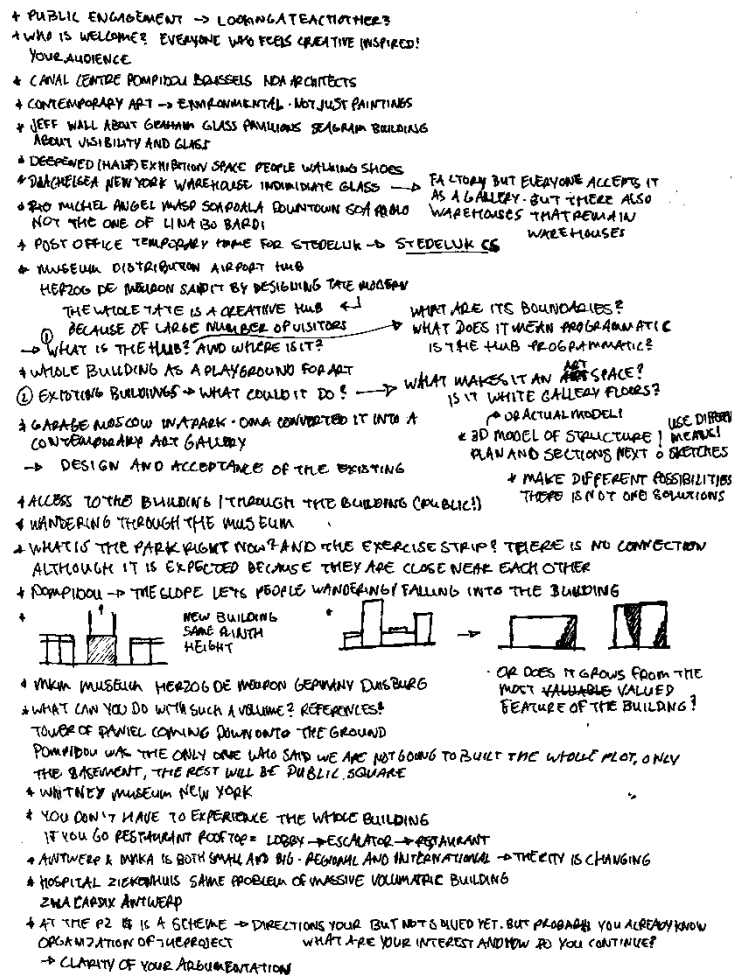 + PUBLIC ENGAGEMENT → LOOKINGATEACHOTHER3
+ WHO IS WELCOME? EVERYONE WHO FEELS CREATIVE INSPIRED!
YOUR AUDIENCE
* CANAL CENTRE POMPIDOU BRUSSELS NOA ARCHITECTS
* CONTEMPORARY ART → ENVIRONMENTAL · NOT JUST PAINTINGS
* JEFF WALL ABOUT GRAHAM GLASS PAVILIONS SEAGRAM BUILDING
ABOUT VISIBILITY AND GLASS
* DEEPENED (HALF) EXHIBITION SPACE PEOPLE WALKING SHOES
* DIACHELSEA NEW YORK WAREHOUSE GLASS → FACTORY BUT EVERYONE ACCEPTS IT
AS A GALLERY. BUT THERE ALSO
WAREHOUSES THAT REMAIN
WAREHOUSES
* MICHEL ANGEL MASP DOWNTOWN
NOT THE ONE OF LINA BO BARDI
+ POST OFFICE TEMPORARY HOME FOR STEDELIJK → STEDELIJK CS
* MUSEUM DISTRIBUTION AIRPORT HUB
HERZOG DE MEURON SAID IT BY DESIGNING TATE MODERN
THE WHOLE TATE IS A CREATIVE HUB
BECAUSE OF LARGE NUMBER OF VISITORS
① → WHAT IS THE HUB? AND WHERE IS IT?
→ WHAT ARE ITS BOUNDARIES?
WHAT DOES IT MEAN PROGRAMMATIC
IS THE HUB PROGRAMMATIC?
* WHOLE BUILDING AS A PLAYGROUND FOR ART
② EXISTING BUILDINGS → WHAT COULD IT DO? → WHAT MAKES IT AN ART SPACE?
IS IT WHITE GALLERY FLOORS?
* GARAGE MOSCOW IN A PARK · OMA CONVERTED IT INTO A
CONTEMPORARY ART GALLERY
→ DESIGN AND ACCEPTANCE OF THE EXISTING
OR ACTUAL MODEL!
* 3D MODEL OF STRUCTURE!
PLAN AND SECTIONS NEXT
USE DIFFEREN
MEANS!
SKETCHES
* MAKE DIFFERENT POSSIBILITIES
THERE IS NOT ONE SOLUTIONS
+ ACCESS TO THE BUILDING / THROUGH THE BUILDING (PUBLIC!)
* WANDERING THROUGH THE MUSEUM
* WHAT IS THE PARK RIGHT NOW? AND THE EXERCISE STRIP? THERE IS NO CONNECTION
ALTHOUGH IT IS EXPECTED BECAUSE THEY ARE CLOSE NEAR EACH OTHER
* POMPIDOU → THE SLOPE LETS PEOPLE WANDERING / FALLING INTO THE BUILDING
* NEW BUILDING
SAME PLINTH
HEIGHT
*
· OR DOES IT GROWS FROM THE
MOST VALUABLE VALUED
FEATURE OF THE BUILDING?
* MKM MUSEUM HERZOG DE MEURON GERMANY DUISBURG
* WHAT CAN YOU DO WITH SUCH A VOLUME? REFERENCES!
TOWER OF DANIEL COMING DOWN ONTO THE GROUND
POMPIDOU WAS THE ONLY ONE WHO SAID WE ARE NOT GOING TO BUILT THE WHOLE PLOT, ONLY
THE BASEMENT, THE REST WILL BE PUBLIC SQUARE
* WHITNEY MUSEUM NEW YORK
* YOU DON'T HAVE TO EXPERIENCE THE WHOLE BUILDING
IF YOU GO RESTAURANT ROOFTOP = LOBBY → ESCALATOR → RESTAURANT
* ANTWERP & MUKA IS BOTH SMALL AND BIG · REGIONAL AND INTERNATIONAL → THE CITY IS CHANGING
* HOSPITAL ZIEKENHUIS SAME PROBLEM OF MASSIVE VOLUMATRIC BUILDING
ZNA CADIX ANTWERP
* AT THE P2 IS A SCHEME → DIRECTIONS YOUR BUT NOT SOLVED YET. BUT PROBABLY YOU ALREADY KNOW
ORGANIZATION OF THE PROJECT WHAT ARE YOUR INTEREST AND HOW DO YOU CONTINUE?
→ CLARITY OF YOUR ARGUMENTATION